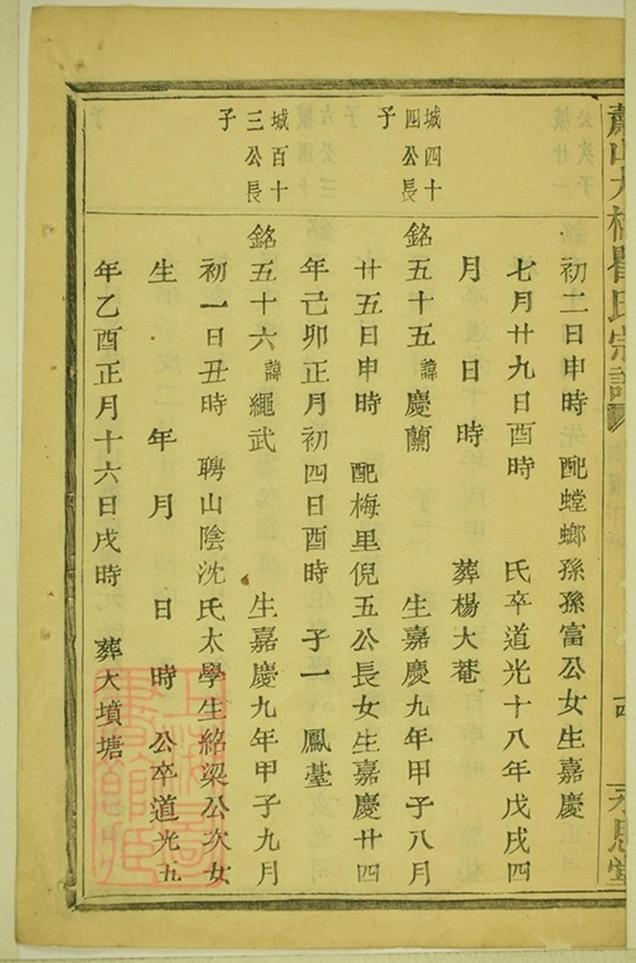 蕭山大橋瞿氏宗譜
永思堂
初二日申時 配螳螂孫孫富公女生嘉慶
七月廿九日酉時 氏卒道光十八年戊戌四
月 日 時 葬楊大菴
城四十
四公長
子
銘五十五諱慶蘭 生嘉慶九年甲子八月
廿五日申時 配梅里倪五公長女生嘉慶廿四
年己卯正月初四日酉時 子一 鳳臺
城百十
三公長
子
銘五十六諱繩武 生嘉慶九年甲子九月
初一日丑時 聘山陰沈氏太學生紹梁公次女
生 年 月 日 時 公卒道光五
年乙酉正月十六日戌時 葬大墳塘